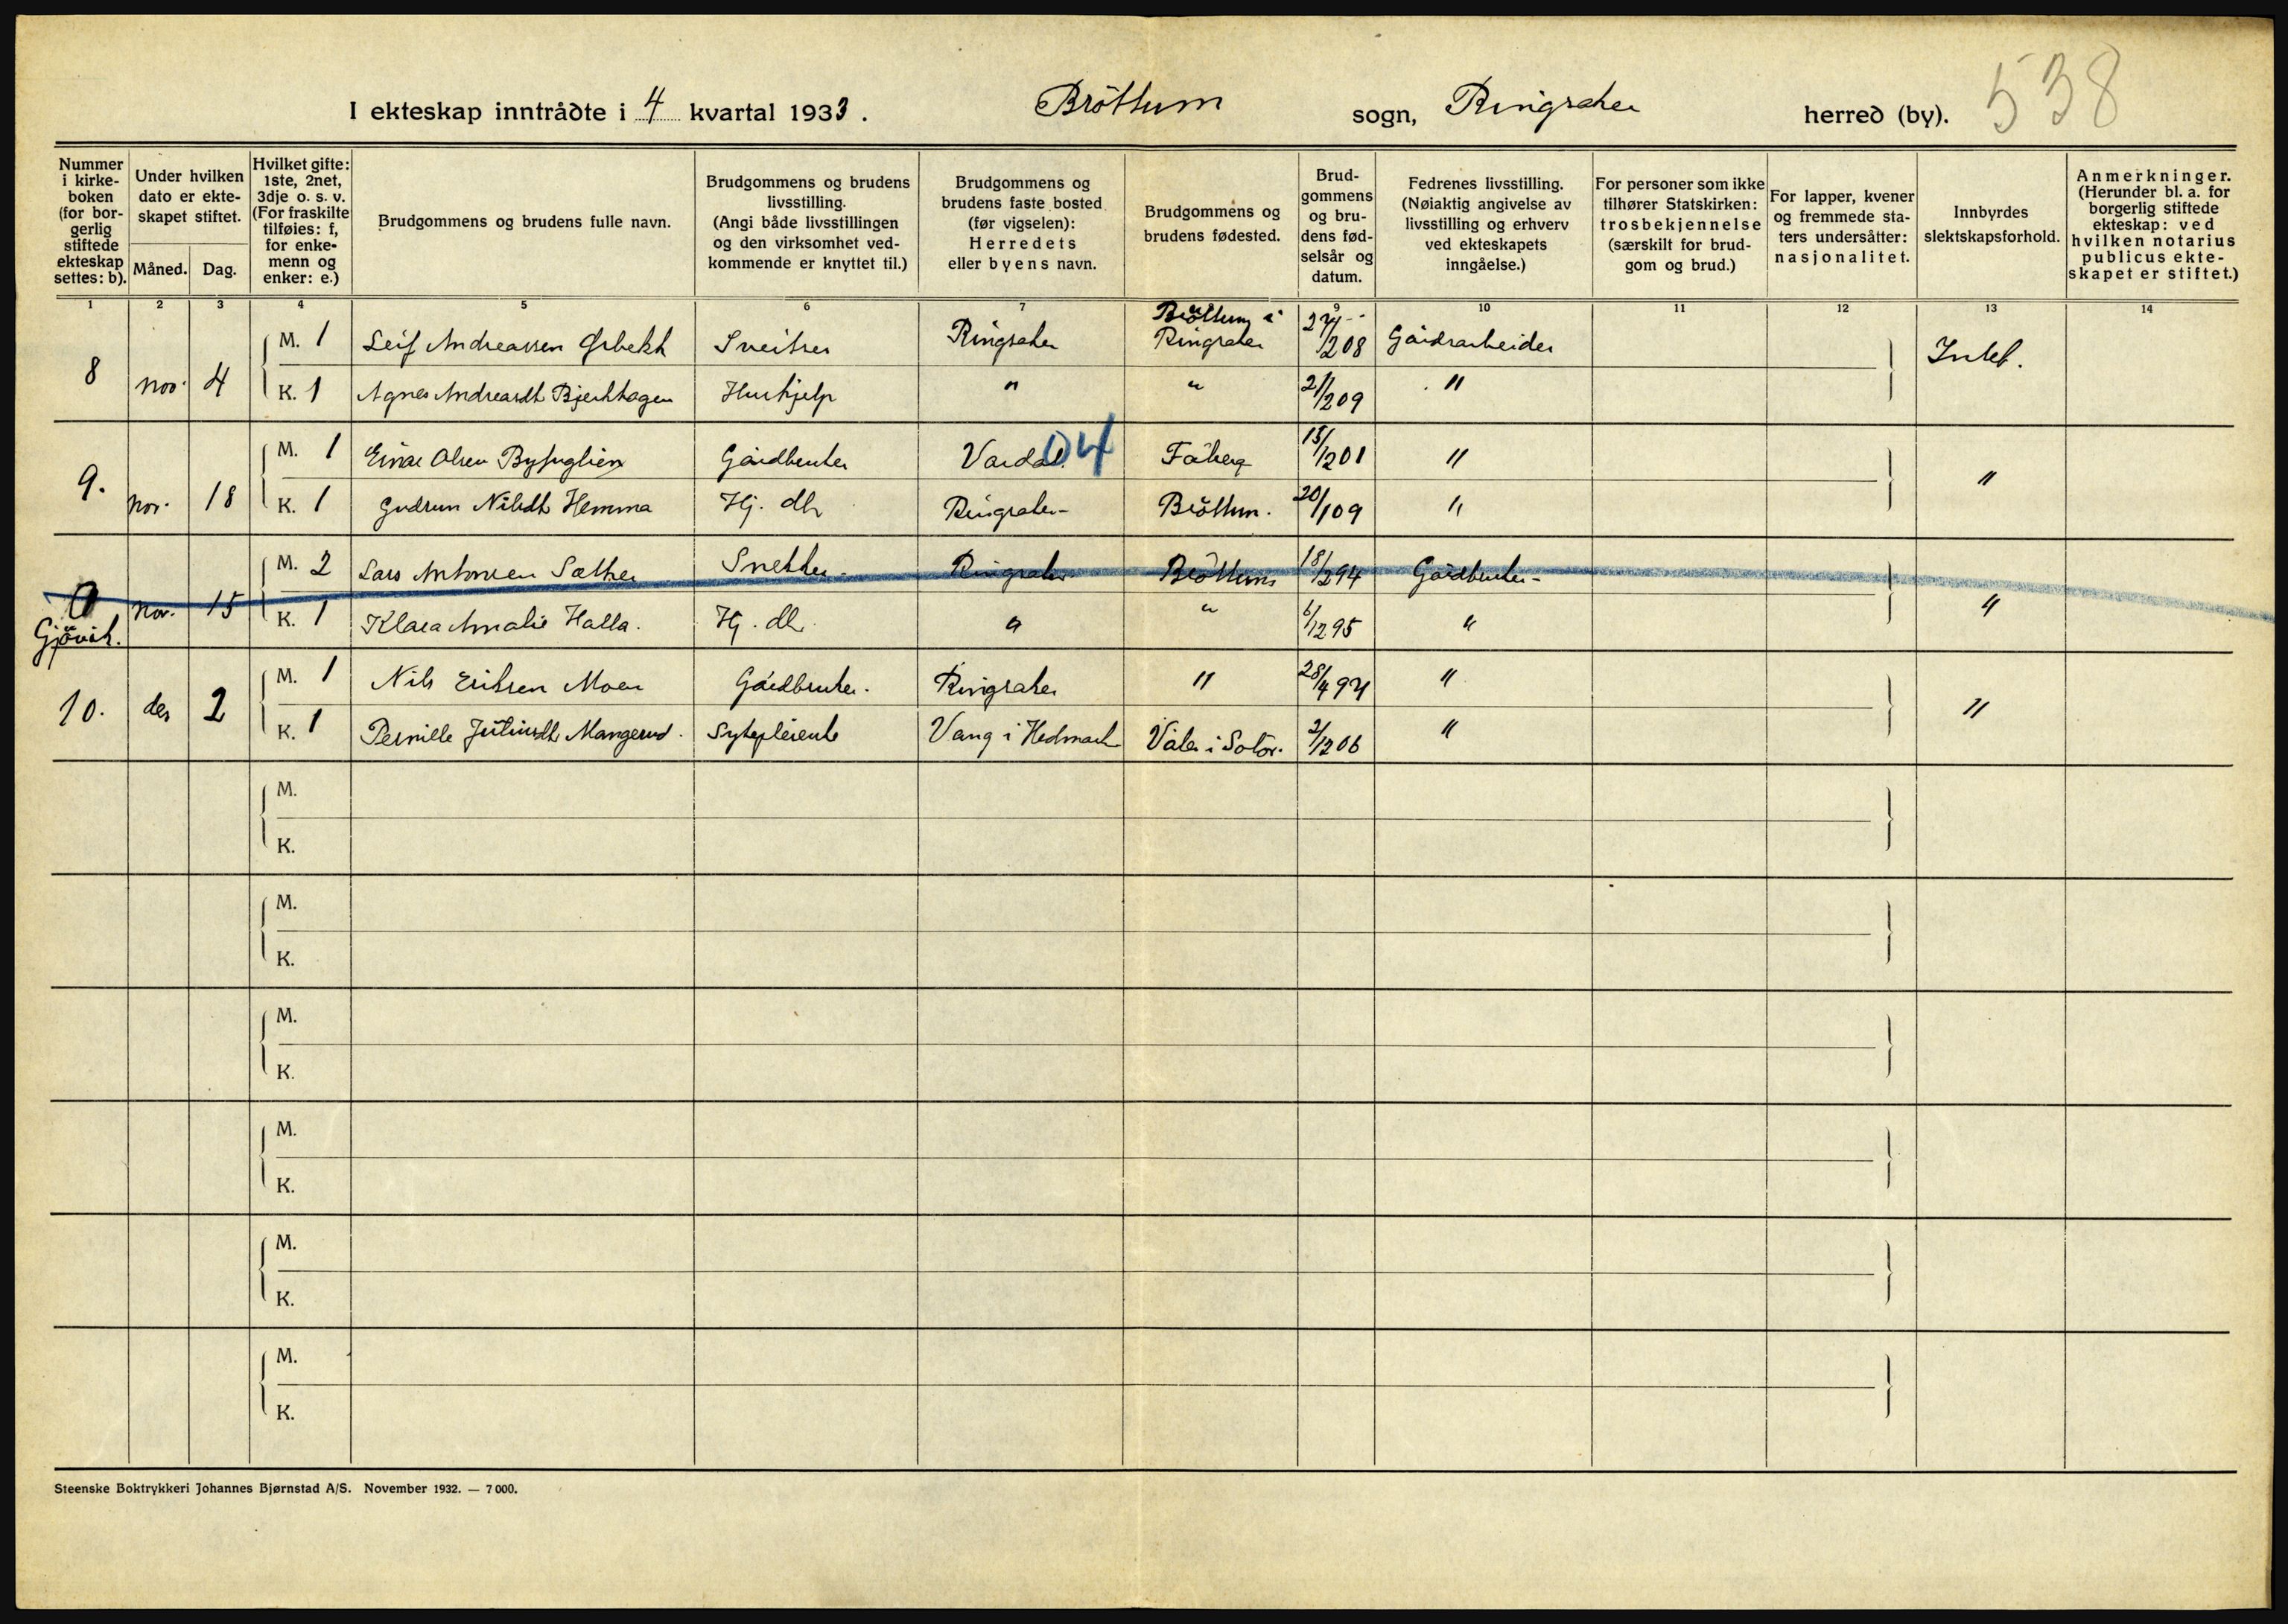 538
I ekteskap inntrådte i 4 kvartal 1933. Bröttum sogn, Ringsaker herred (by).
Nummer i kirkeboken (for borgerlig stiftede ekteskap settes: b).
Under hvilken dato er ekteskapet stiftet.
Måned. Dag.
Hvilket gifte: 1ste, 2net, 3dje o. s. v. (For fraskilte tilføies: f, for enkemenn og enker: e.)
Brudgommens og brudens fulle navn.
Brudgommens og brudens livsstilling. (Angi både livsstillingen og den virksomhet vedkommende er knyttet til.)
Brudgommens og brudens faste bosted (før vigselen): Herredets eller byens navn.
Brudgommens og brudens fødested.
Brudgommens og brudens fødselsår og datum.
Fedrenes livsstilling. (Nøiaktig angivelse av livsstilling og erhverv ved ekteskapets inngåelse.)
For personer som ikke tilhører Statskirken: trosbekjennelse (særskilt for brudgom og brud.)
For lapper, kvener og fremmede staters undersåtter: nasjonalitet.
Innbyrdes slektskapsforhold.
Anmerkninger. (Herunder bl. a. for borgerlig stiftede ekteskap: ved hvilken notarius publicus ekteskapet er stiftet.)
1 2 3 4 5 6 7 8 9 10 11 12 13 14
8 nov. 4 M. 1 Leif Andreassen Ørbekk Sveitser Ringsaker Bröttum i Ringsaker /208 Gårdsarbeider
K. 1 Agnes Andreasdt Bjerkhagen Hushjelp " " 21/209 "
9. nov. 18 M. 1 Einar Olsen Byfuglien Gårdbruker Vardal 04 Fåberg 15/201 " "
K. 1 Gudrun Nilsdt Hemma Hj. dtr Ringsaker Bröttum. 20/109 "
Gjövik. nov. 15 M. 2 Lars Antonsen Sæther Snekker Ringsaker Bröttum 18/294 Gårdbruker "
K. 1 Klara Amalie Halla. Hj. dtr " " 6/1295 "
10. des 2 M. 1 Nils Eriksen Moen Gårdbruker. Ringsaker " 28/4 94 " "
K. 1 Pernille Juliusdt Mangerud. Sykepleierske Vang i Hedmark Våler i Solör. 2/1206 "
M.
K.
M.
K.
M.
K.
M.
K.
M.
K.
M.
K.
Steenske Boktrykkeri Johannes Bjørnstad A/S. November 1932. — 7 000.